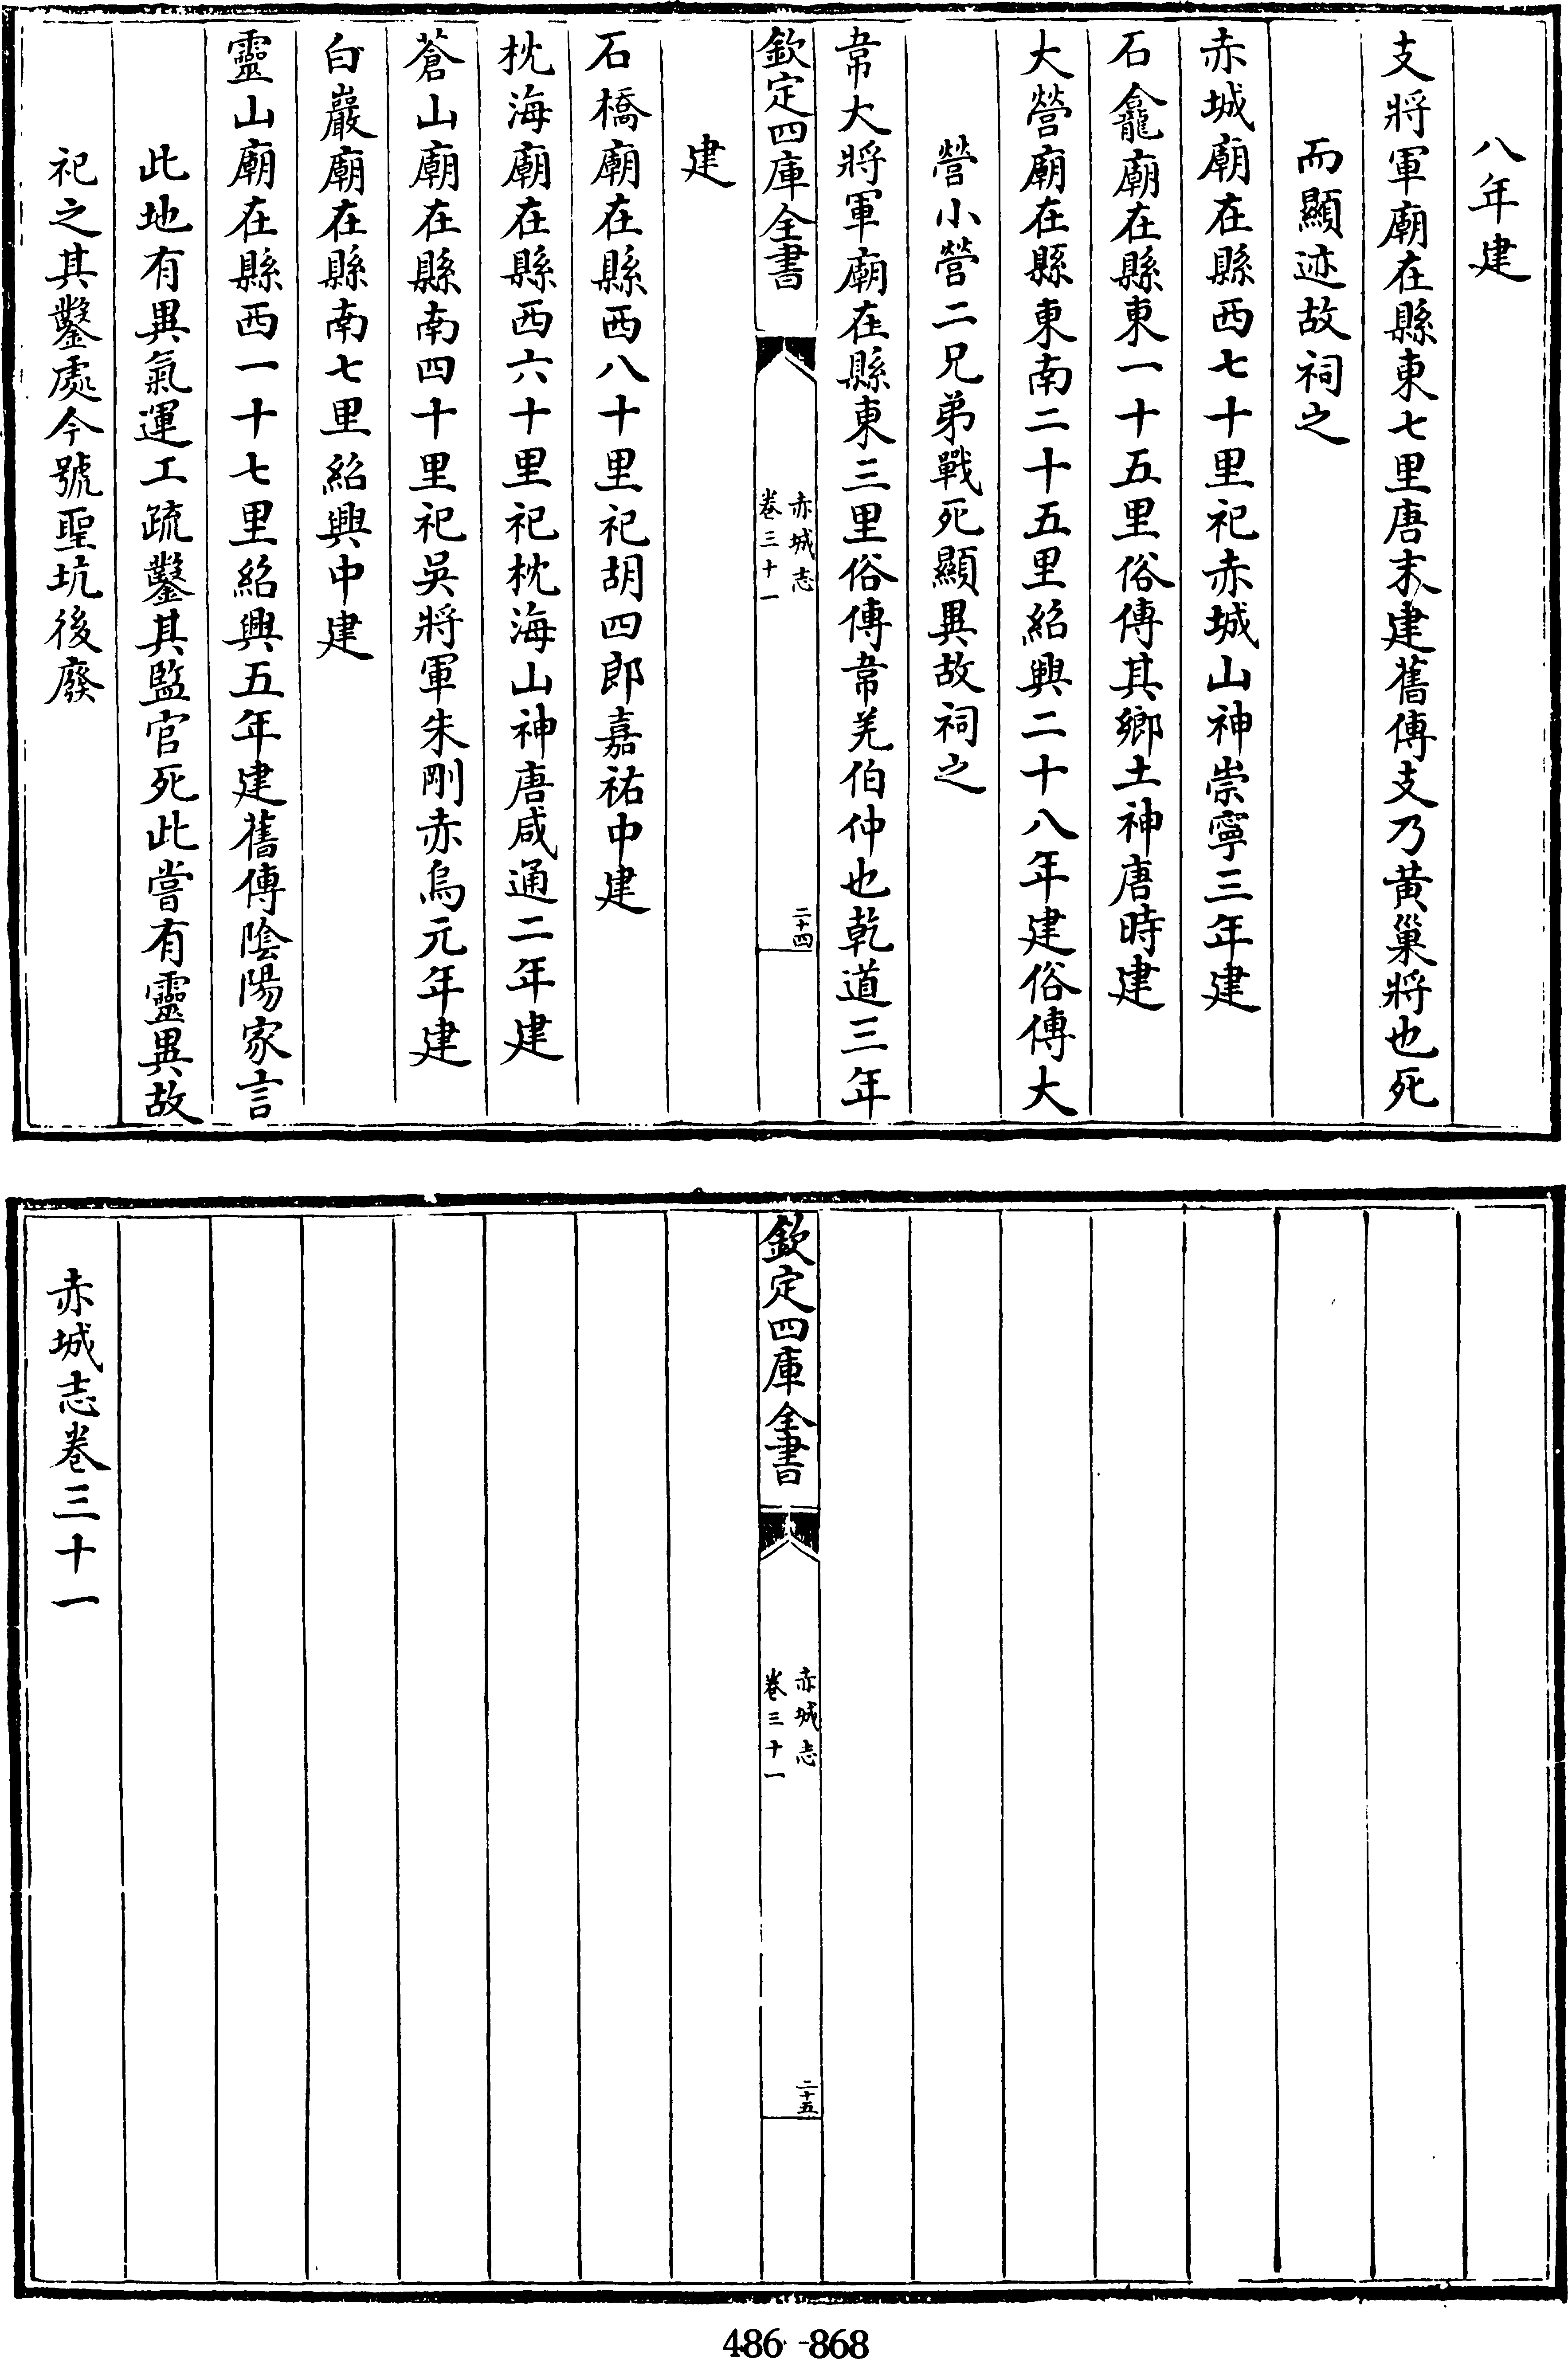 八年建
支將軍廟在縣東七里唐末建舊傳支乃黄巢將也死
而顯迹故祠之
赤城廟在縣西七十里祀赤城山神崇寧三年建
石龕廟在縣東一十五里俗傳其鄉土神唐時建
大營廟在縣東南二十五里紹興二十八年建俗傳大
營小營二兄弟戰死顯異故祠之
韋大將軍廟在縣東三里俗傳韋羌伯仲也乾道三年
欽定四庫全書
赤城志
卷三十一
二十四
建
石橋廟在縣西八十里祀胡四郎嘉祐中建
枕海廟在縣西六十里祀枕海山神唐咸通二年建
蒼山廟在縣南四十里祀吳將軍朱剛赤烏元年建
白巖廟在縣南七里紹興中建
靈山廟在縣西一十七里紹興五年建舊傳陰陽家言
此地有異氣運工疏鑿其監官死此嘗有靈異故
祀之其鑿處今號聖坑後廢
欽定四庫全書
赤城志
卷三十一
二十五
赤城志卷三十一
486-868